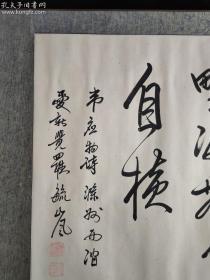 孔夫子旧书网
野渡无人
自横
韦应物诗滁州西涧
爱新觉罗毓岚